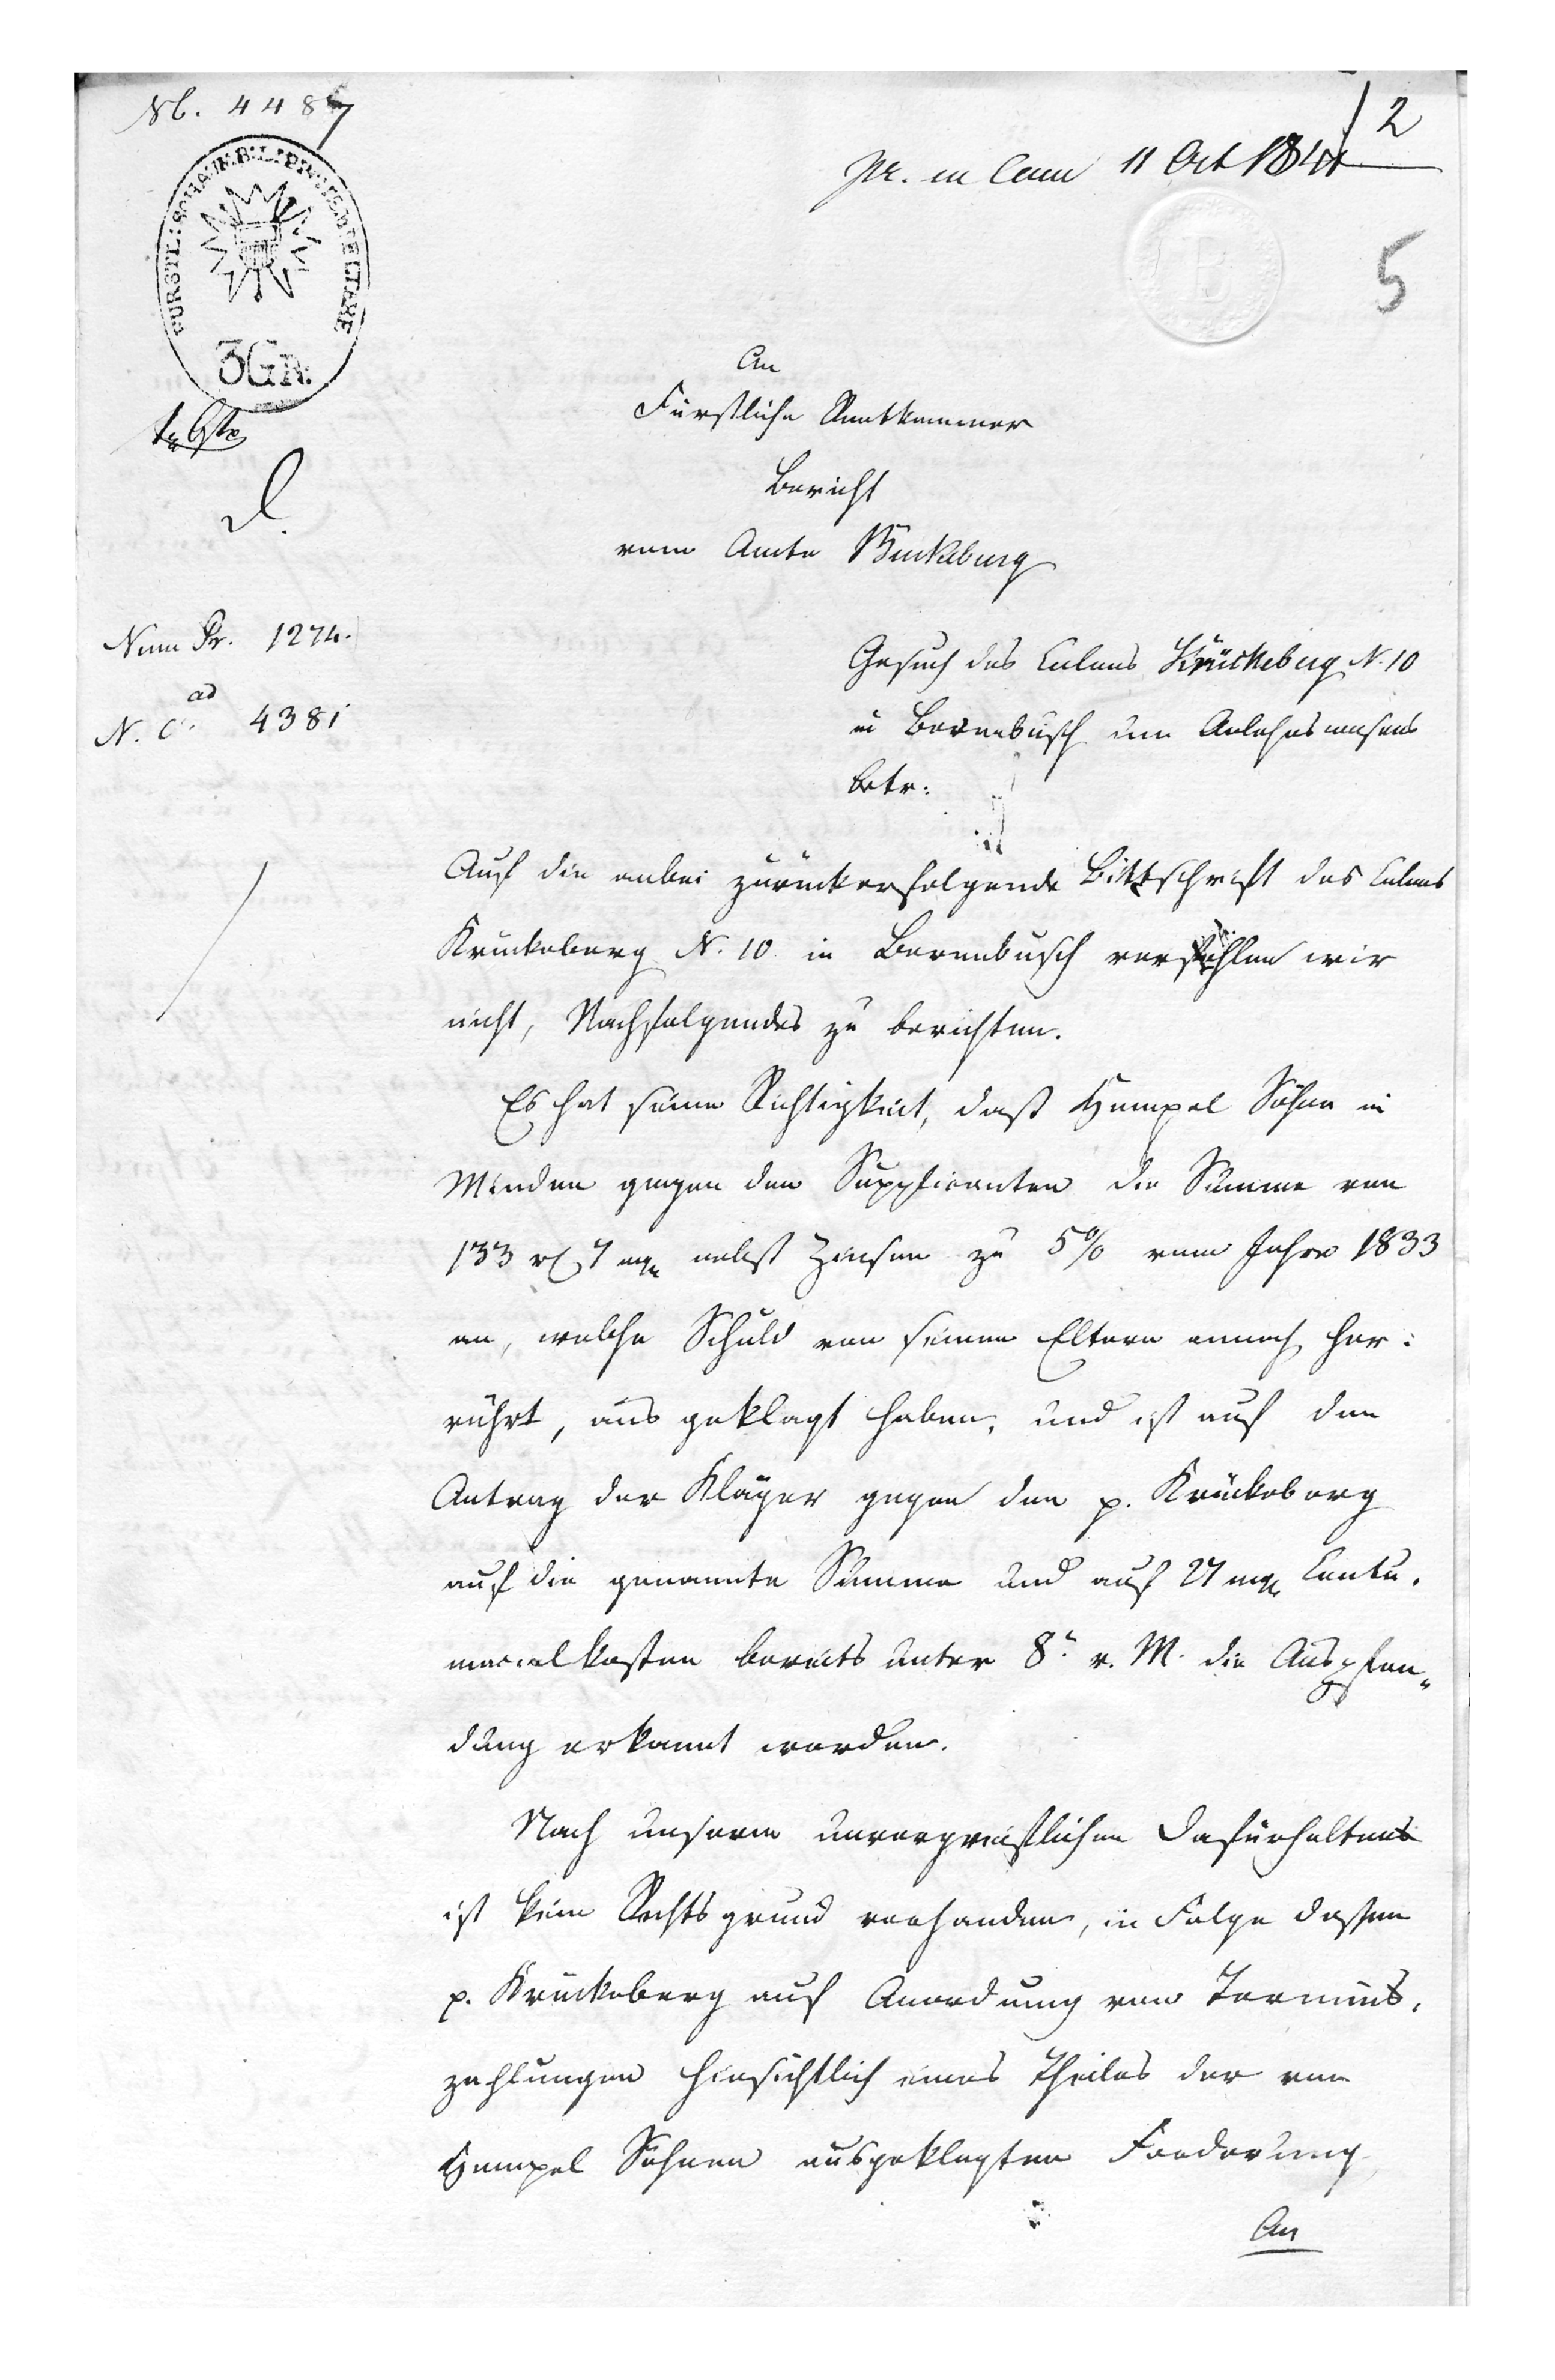 Nb. 4487
2
pr. in Cam 11 Oct 1841
5
FÜRSTL: SCHAUMB: LIPP: STEMPELTAXE
3GR.
B
An
Fürstliche Rentkammer
Bericht
vom Amte Bückeburg
Num Pr. 1274.
ad
N. C. 4381
Gesuch des Colons Krückeberg N. 10
in Berenbusch um Anlehns
betr:
Auf die anbei zurückerfolgende Bittschrift des Colons
Krückeberg N. 10 in Berenbusch verfehlen wir
nicht, Nachfolgendes zu berichten.
Es hat seine Richtigkeit, daß Hempel Söhne in
Minden gegen den Supplicanten die Summe von
133 rℓ 7 mg nebst Zinsen zu 5% vom Jahre 1833
an, welche Schuld von seinen Eltern annoch her:
rührt, aus geklagt haben, und ist auf den
Antrag der Kläger gegen den p. Krückeberg
auf die genannte Summe und auf 27 mg Contu.
macialkosten bereits unter 8t v. M. die Auspfän„
dung erkannt worden.
Nach unserm unvorgreiflichen Dafürhalten
ist kein Rechtsgrund vorhanden, in Folge dessen
p. Krückeberg auf Anordnung von Termins.
zahlungen hinsichtlich eines Theiles der von
Hempel Söhnen ausgeklagten Forderung
An